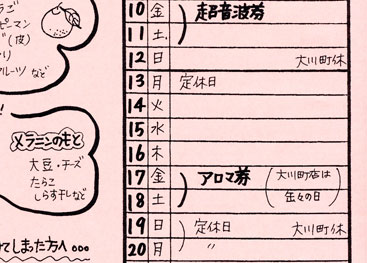 ピーマン
(皮)
フルーツ など
メラニンのもと
大豆・チーズ
たらこ
しらす干しなど
てしまった方へ 。。。
10 金 超音波券
11 土
12 日 大川町休
13 月 定休日
14 火
15 水
16 木
17 金 アロマ券 (大川町店は
18 土 缶々の日)
19 日 定休日 大川町休
20 月 〃